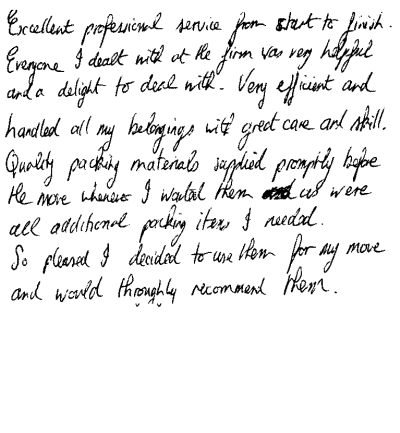 Excellent professional service from start to finish.
Everyone I dealt with at the firm was very helpful
and a delight to deal with. Very efficient and
handled all my belongings with great care and skill.
Quality packing materials supplied promptly before
the move whenever I wanted them as were
all additional packing items I needed.
So pleased I decided to use them for my move
and would throughly recommend them.